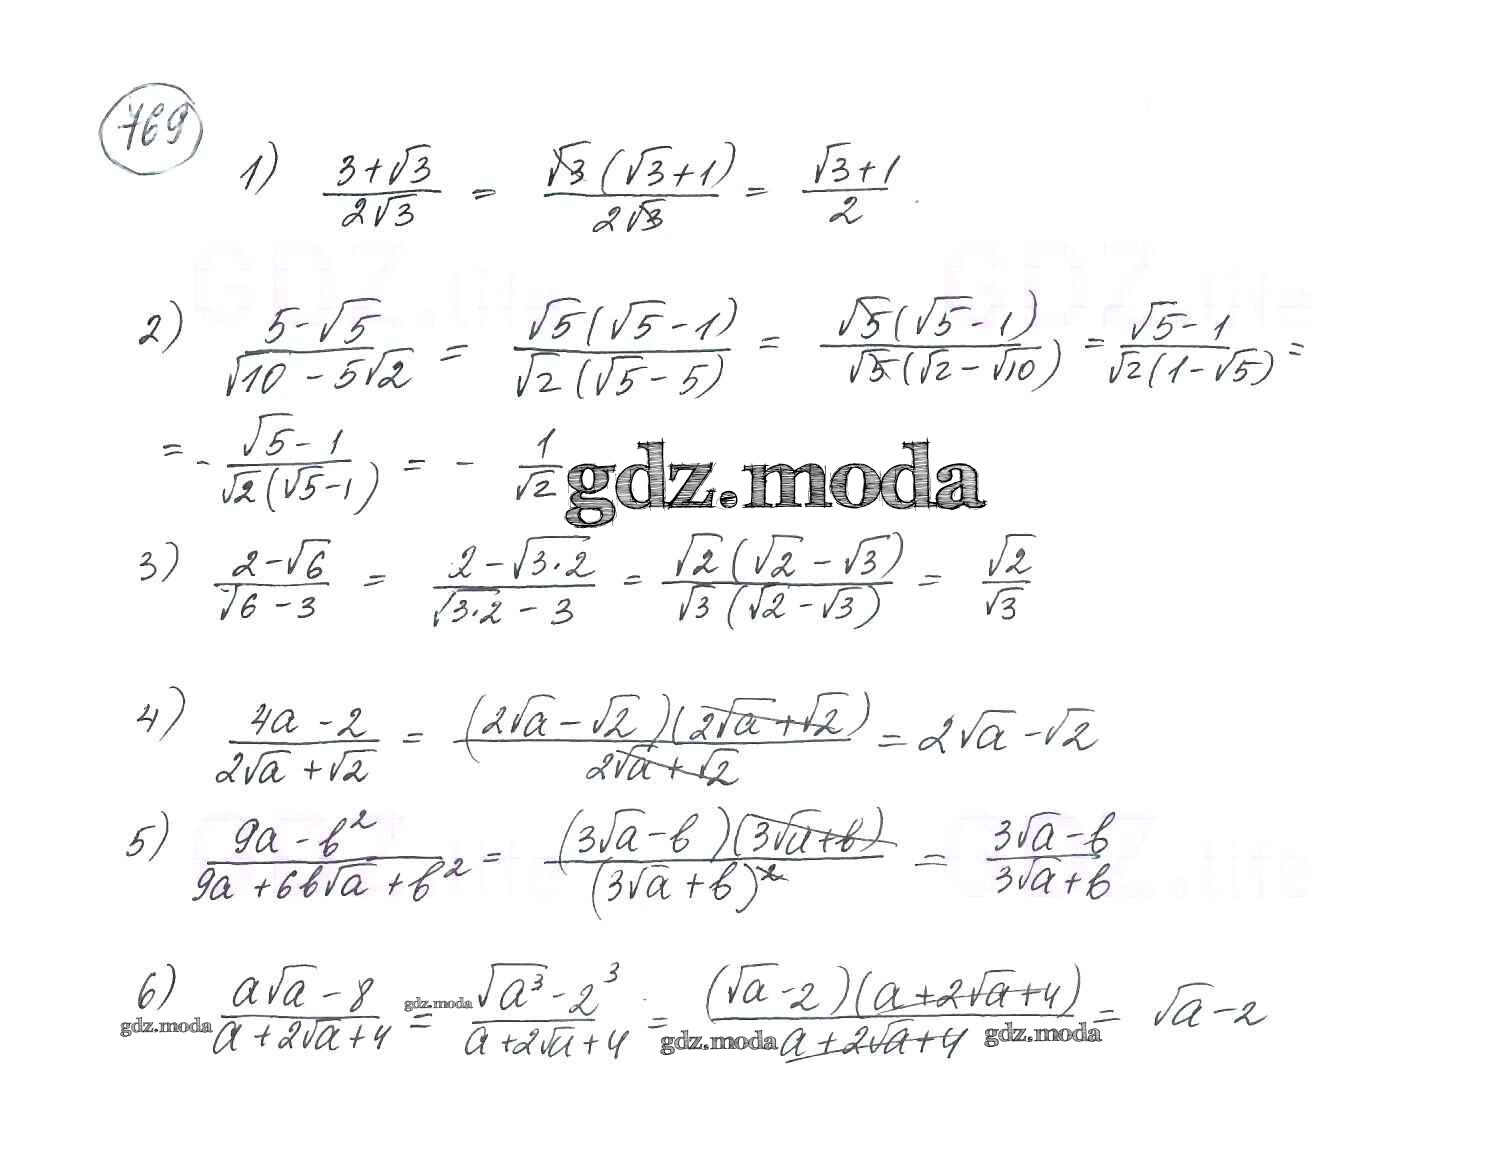 769
1) (3+√3)/(2√3) = (√3(√3+1))/(2√3) = (√3+1)/2
2) (5-√5)/(√10-5√2) = (√5(√5-1))/(√2(√5-5)) = (√5(√5-1))/(√5(√2-√10)) = (√5-1)/(√2(1-√5)) =
= -(√5-1)/(√2(√5-1)) = -1/√2
gdz.moda
3) (2-√6)/(√6-3) = (2-√(3·2))/(√(3·2)-3) = (√2(√2-√3))/(√3(√2-√3)) = √2/√3
4) (4a-2)/(2√a+√2) = ((2√a-√2)(2√a+√2))/(2√a+√2) = 2√a-√2
5) (9a-b²)/(9a+6b√a+b²) = ((3√a-b)(3√a+b))/(3√a+b)² = (3√a-b)/(3√a+b)
6) (a√a-8)/(a+2√a+4) = (√a³-2³)/(a+2√a+4) = ((√a-2)(a+2√a+4))/(a+2√a+4) = √a-2
gdz.moda gdz.moda gdz.moda gdz.moda
GDZ.life GDZ.life
GDZ.life GDZ.life